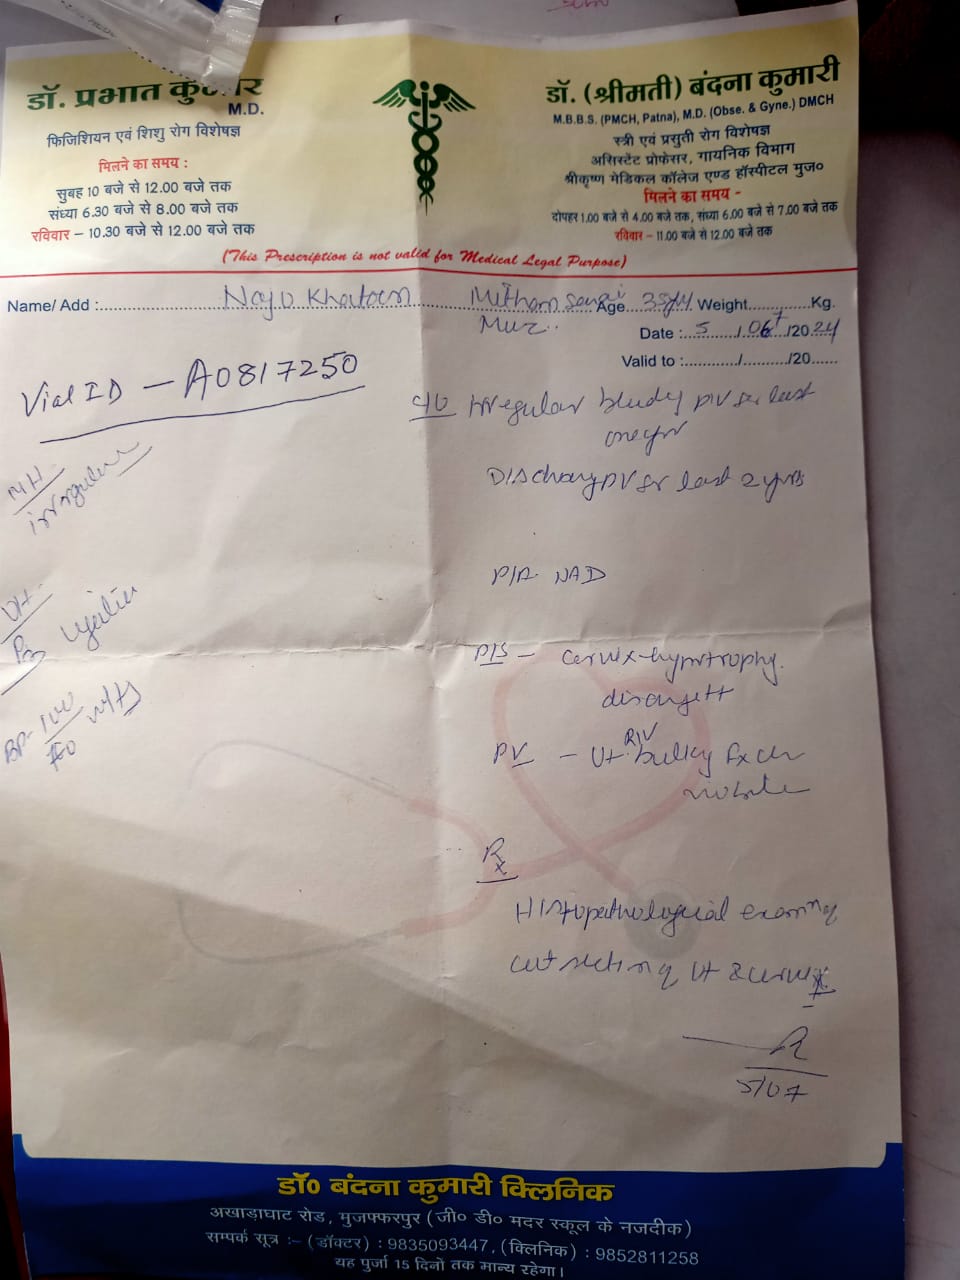 डॉ. प्रभात कुमार
M.D.
फिजिशियन एवं शिशु रोग विशेषज्ञ
मिलने का समय :
सुबह 10 बजे से 12.00 बजे तक
संध्या 6.30 बजे से 8.00 बजे तक
रविवार – 10.30 बजे से 12.00 बजे तक
डॉ. (श्रीमती) बंदना कुमारी
M.B.B.S. (PMCH, Patna), M.D. (Obse. & Gyne.) DMCH
स्त्री एवं प्रसुती रोग विशेषज्ञ
असिस्टेंट प्रोफेसर, गायनिक विभाग
श्रीकृष्ण मेडिकल कॉलेज एण्ड हॉस्पीटल मुज०
मिलने का समय -
दोपहर 1.00 बजे से 4.00 बजे तक, संध्या 6.00 बजे से 7.00 बजे तक
रविवार – 11.00 बजे से 12.00 बजे तक
(This Prescription is not valid for Medical Legal Purpose)
Name/ Add : Khatoon Age 35y Weight Kg.
Muz..
Date : 5 /07 /2024
Valid to : / /20
Vial ID – A0817250
c/o Irregular PV for last
one yr
PV for last 2 yrs
MH
irregular
P/A NAD
OH
P/S – cervix-hypertrophy.
BP- 100
PV – Ut R/V bulky Fx
mobile
Rx
Histopathological examn of
cut section of Ut & cervix
5/07
डॉ० बंदना कुमारी क्लिनिक
अखाड़ाघाट रोड, मुजफ्फरपुर (जी० डी० मदर स्कूल के नजदीक)
सम्पर्क सूत्र :– (डॉक्टर) : 9835093447, (क्लिनिक) : 9852811258
यह पुर्जा 15 दिनों तक मान्य रहेगा।